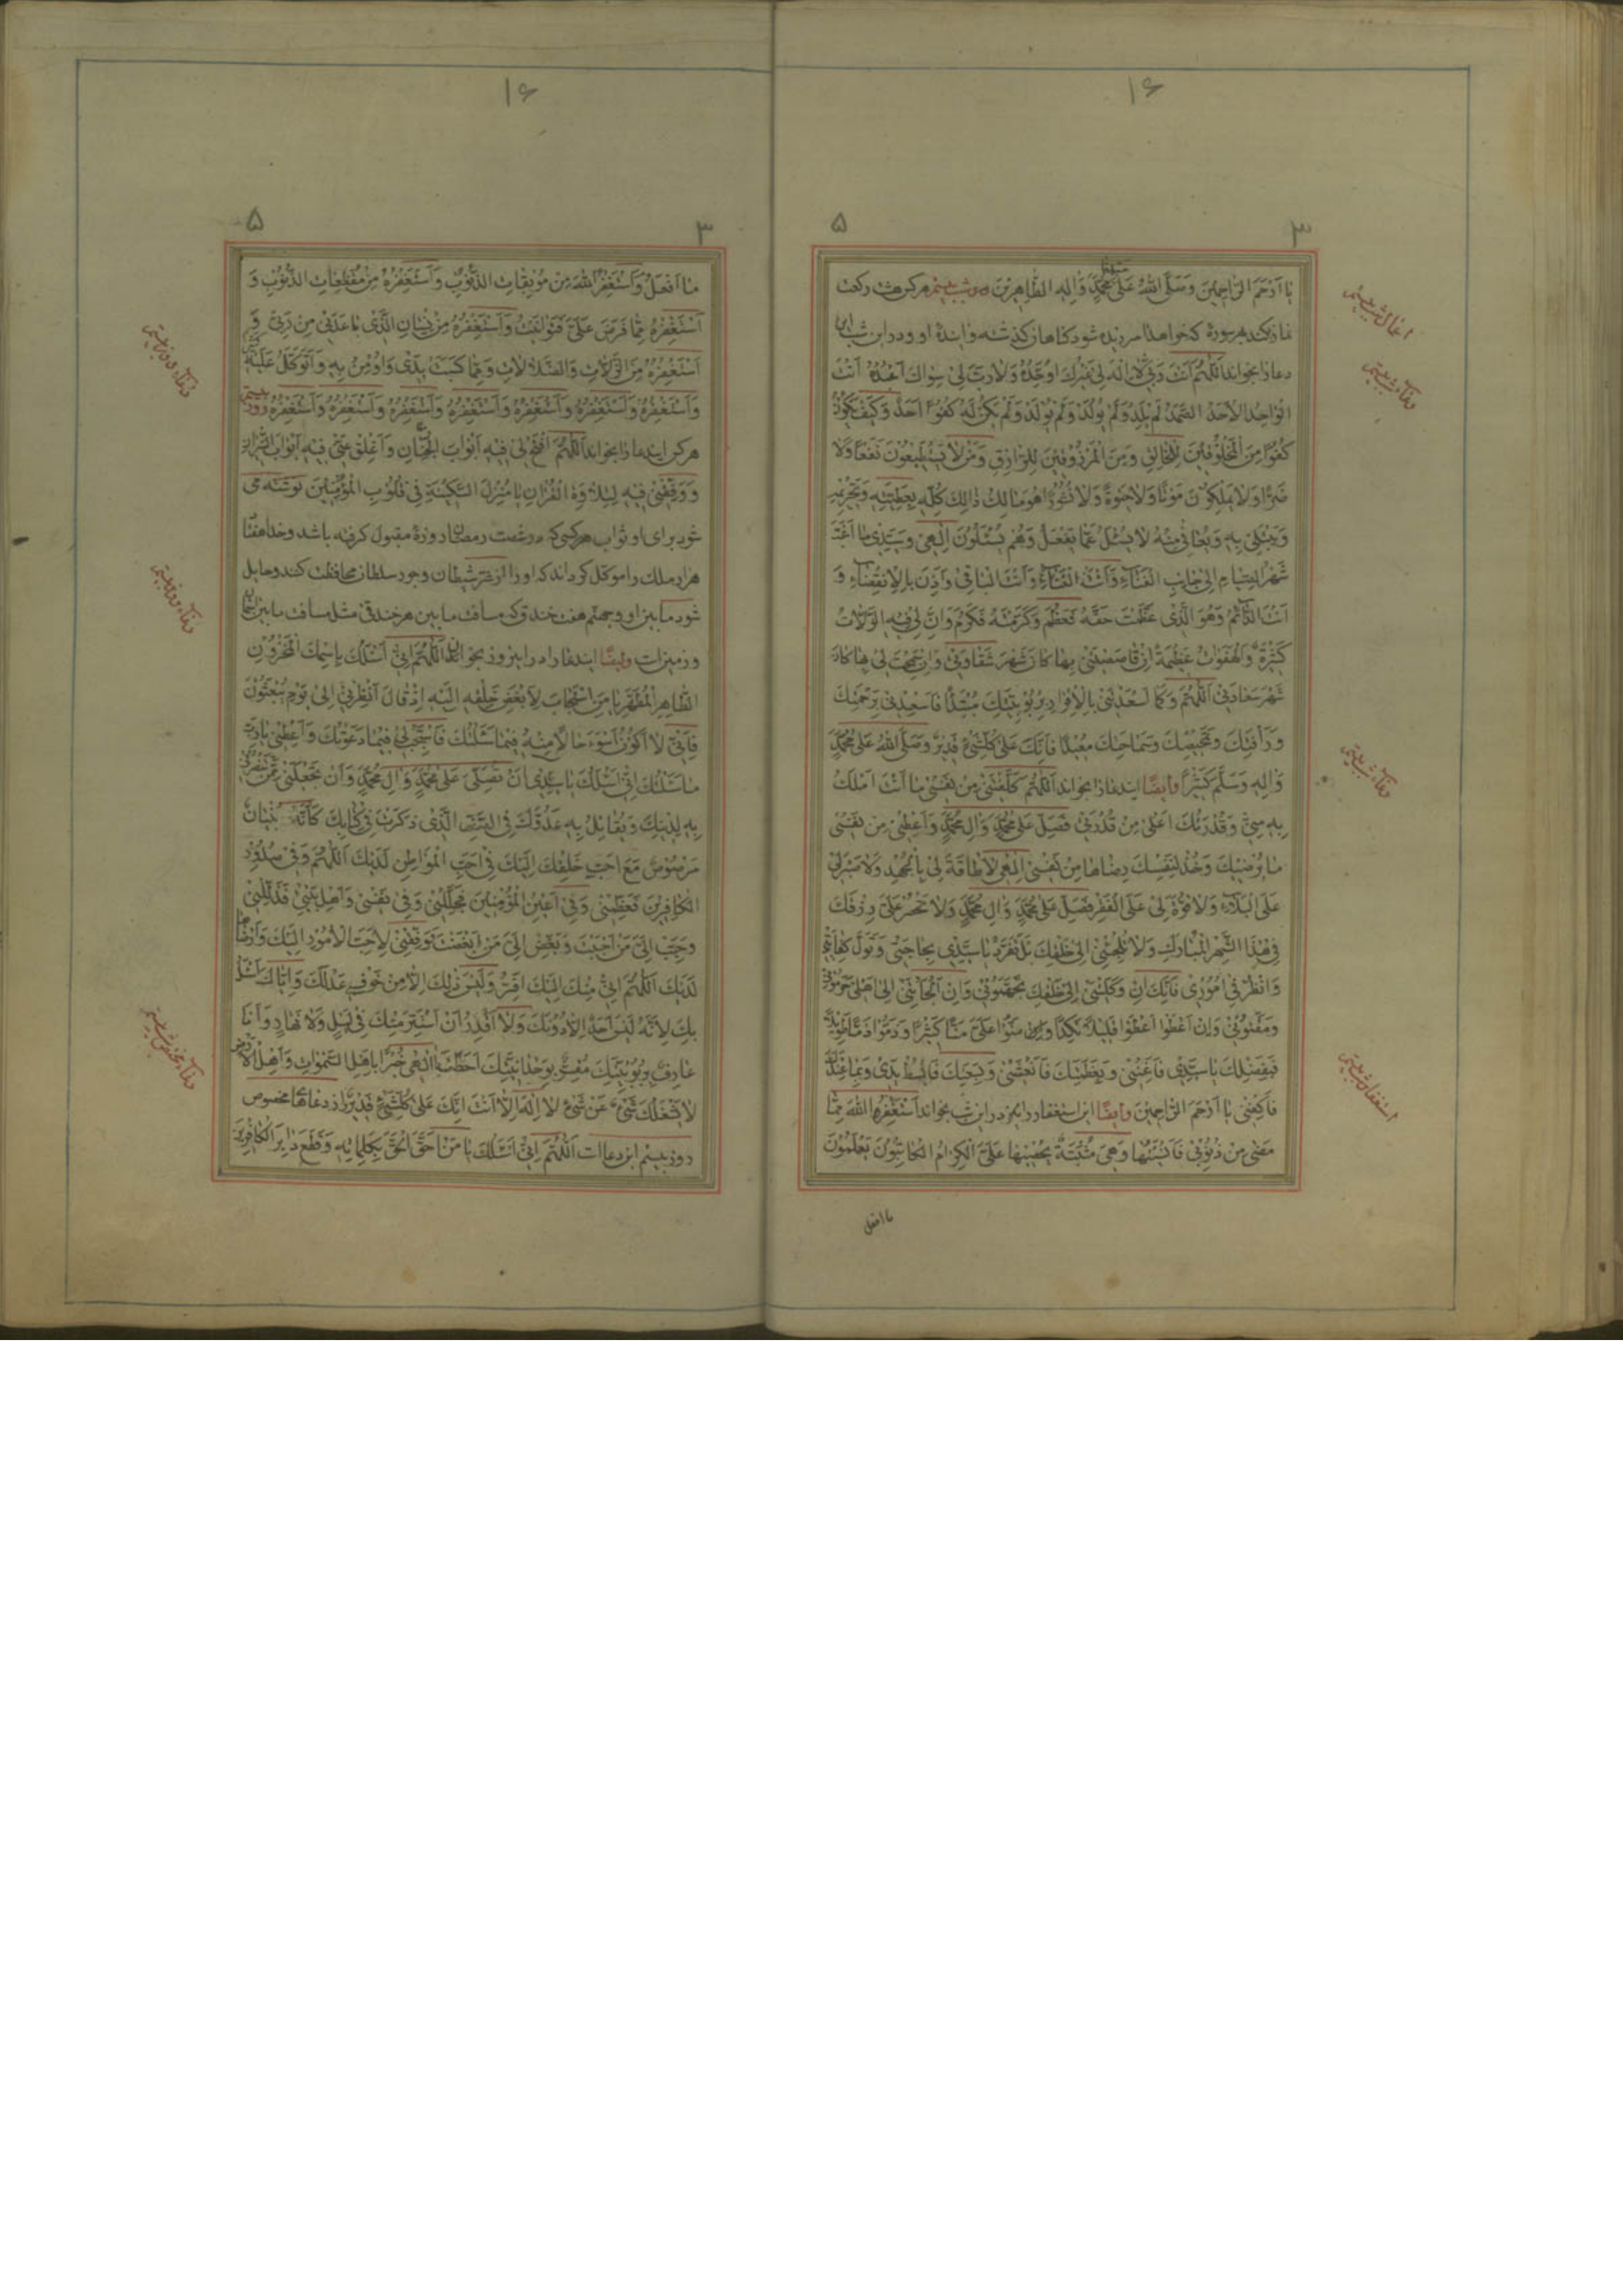 ۱۶
۳ ۵
يا اَرْحَمَ الرّاحِمينَ وَصَلَّى اللهُ عَلى سَيِّدِنا مُحَمَّدٍ وَالِهِ الطّاهِرينَ شب بیستم هرکس هشت رکعت
نماز بکند بهر سوره که خواهد آمرزیده شود گناهان گذشته و آینده او و در این شب این
دعا را بخواند اَللّهُمَّ اَنْتَ رَبّى لا اِلهَ لى غَيْرُكَ اُوَحِّدُهُ وَلا رَبَّ لى سِواكَ اَعْبُدُهُ اَنْتَ
الْواحِدُ الْاَحَدُ الصَّمَدُ لَمْ يَلِدْ وَلَمْ يُولَدْ وَلَمْ يَكُنْ لَهُ كُفُوًا اَحَدٌ وَكَيْفَ يَكُونُ
كُفُوًا مِنَ الْمَخْلُوقينَ لِلْخالِقِ وَمِنَ الْمَرْزُوقينَ لِلرّازِقِ وَمَنْ لا يَسْتَطيعُونَ نَفْعًا وَلا
ضَرًّا وَلا يَمْلِكُونَ مَوْتًا وَلا حَيوةً وَلا نُشُورًا هُوَ مالِكُ ذلِكَ كُلِّهِ بِعَطِيَّتِهِ وَتَحْريمِهِ
وَيَبْتَلى بِهِ وَيُعافى مِنْهُ لا يُسْئَلُ عَمّا يَفْعَلُ وَهُمْ يُسْئَلُونَ اِلهى وَسَيِّدى ما اَغَبَّ
شَهْرُ الصِّيامِ اِلى جانِبِ الْفَناءِ وَاَنْتَ الْباقى وَاذَنَ بِالْاِنْقِضاءِ وَ
اَنْتَ الدّائِمُ وَهُوَ الَّذى عَظَّمْتَ حَقَّهُ فَعَظُمَ وَكَرَّمْتَهُ فَكَرُمَ وَاِنَّ لى فيهِ الزَّلّاتِ
كَثيرَةً وَالْهَفَواتِ عَظيمَةً اِنْ قاصَصْتَنى بِها كانَ شَهْرَ شَقاوَتى وَاِنْ سَمَحْتَ لى بِها كانَ
شَهْرَ سَعادَتى اَللّهُمَّ وَكَما اَسْعَدْتَنى بِالْاِقْرارِ بِرُبُوبِيَّتِكَ مُبْتَدِءًا فَاَسْعِدْنى بِرَحْمَتِكَ
وَرَاْفَتِكَ وَتَمْحيصِكَ وَسَماحَتِكَ مُعيدًا فَاِنَّكَ عَلى كُلِّ شَىْءٍ قَديرٌ وَصَلَّى اللهُ عَلى مُحَمَّدٍ
وَالِهِ وَسَلَّمَ كَثيرًا وایضًا ایندعا را بخواند اَللّهُمَّ كَلَّفْتَنى مِنْ نَفْسى ما اَنْتَ اَمْلَكُ
بِهِ مِنّى وَقُدْرَتُكَ اَعْلى مِنْ قُدْرَتى فَصَلِّ عَلى مُحَمَّدٍ وَالِ مُحَمَّدٍ وَاَعْطِنى مِنْ نَفْسى
ما يُرْضيكَ وَخُذْ لِنَفْسِكَ رِضاها مِنْ نَفْسى اِلهى لا طاقَةَ لى بِالْجَهْدِ وَلا صَبْرَ لى
عَلَى الْبَلاءِ وَلا قُوَّةَ لى عَلَى الْفَقْرِ فَصَلِّ عَلى مُحَمَّدٍ وَالِ مُحَمَّدٍ وَلا تَحْظُرْ عَلَىَّ رِزْقَكَ
فى هذَا الشَّهْرِ الْمُبارَكِ وَلا تُلْجِئْنى اِلى خَلْقِكَ بَلْ تَفَرَّدْ يا سَيِّدى بِحاجَتى وَتَوَلَّ كِفايَتى
وَانْظُرْ فى اُمُورى فَاِنَّكَ اِنْ وَكَلْتَنى اِلى خَلْقِكَ تَجَهَّمُونى وَاِنْ اَلْجَاْتَنى اِلى اَهْلى حَرَمُونى
وَمَقَتُونى وَاِنْ اَعْطَوْا اَعْطَوْا قَليلًا نَكِدًا وَمَنُّوا عَلَىَّ مَنًّا كَثيرًا وَذَمُّوا ذَمًّا طَويلًا
فَبِفَضْلِكَ يا سَيِّدى فَاَغْنِنى وَبِعَطِيَّتِكَ فَانْعَشْنى وَبِسَعَتِكَ فَابْسُطْ يَدى وَبِما عِنْدَكَ
فَاكْفِنى يا اَرْحَمَ الرّاحِمينَ وایضًا این استغفار را نیز در این شب بخواند اَسْتَغْفِرُ اللهَ مِمّا
مَضى مِنْ ذُنُوبى فَاُنْسيتُها وَهِىَ مُثْبَتَةٌ يُحْصيها عَلَىَّ الْكِرامُ الْكاتِبُونَ يَعْلَمُونَ
ما افعل
اعمال شب بیستم
دعای شب بیستم
دعای شب بیستم
استغفار شب بیستم
۱۶
۳ ۵
ما اَفْعَلُ وَاَسْتَغْفِرُ اللهَ مِنْ مُوبِقاتِ الذُّنُوبِ وَاَسْتَغْفِرُهُ مِنْ مُفْظِعاتِ الذُّنُوبِ وَ
اَسْتَغْفِرُهُ مِمّا فَرَضَ عَلَىَّ فَتَوانَيْتُ وَاَسْتَغْفِرُهُ مِنْ نِسْيانِ الَّذى باعَدَنى مِنْ رَبّى وَ
اَسْتَغْفِرُهُ مِنَ الزَّلّاتِ وَالضَّلالاتِ وَمِمّا كَسَبَتْ يَدى وَاُؤْمِنُ بِهِ وَاَتَوَكَّلُ عَلَيْهِ
وَاَسْتَغْفِرُهُ وَاَسْتَغْفِرُهُ وَاَسْتَغْفِرُهُ وَاَسْتَغْفِرُهُ وَاَسْتَغْفِرُهُ وَاَسْتَغْفِرُهُ وَاَسْتَغْفِرُهُ روز بیستم
هرکس ایندعا را بخواند اَللّهُمَّ افْتَحْ لى فيهِ اَبْوابَ الْجِنانِ وَاَغْلِقْ عَنّى فيهِ اَبْوابَ النّيرانِ
وَوَفِّقْنى فيهِ لِتِلاوَةِ الْقُرْانِ يا مُنْزِلَ السَّكينَةِ فى قُلُوبِ الْمُؤْمِنينَ نوشته می
شود برای او ثواب هرکسی که شصت رمضان را روزه مقبول گرفته باشد و خدا هفتاد
هزار ملک را موکل گرداند که او را از شر شیطان و جور سلطان محافظت کند و حایل
شود مابین او و جهنم هفت خندق که مسافت مابین هر خندقی مثل مسافت مابین آسمان
و زمین است وایضًا ایندعا را در این روز بخواند اَللّهُمَّ اِنّى اَسْئَلُكَ بِاسْمِكَ الْمَخْزُونِ
الطّاهِرِ الْمُطَهَّرِ يا مَنِ اسْتَجابَ لِاَبْغَضِ خَلْقِهِ اِلَيْهِ اِذْ قالَ اَنْظِرْنى اِلى يَوْمِ يُبْعَثُونَ
فَاِنّى لا اَكُونُ اَسْوَءَ حالًا مِنْهُ فيما سَئَلْتُكَ فَاسْتَجِبْ لى فيما دَعَوْتُكَ وَاَعْطِنى يا رَبِّ
ما سَئَلْتُكَ اِنّى اَسْئَلُكَ يا سَيِّدى اَنْ تُصَلِّىَ عَلى مُحَمَّدٍ وَالِ مُحَمَّدٍ وَاَنْ تَجْعَلَنى مِمَّنْ تَنْتَصِرُ
بِهِ لِدينِكَ وَتُقاتِلُ بِهِ عَدُوَّكَ فى الصَّفِّ الَّذى ذَكَرْتَ فى كِتابِكَ كَاَنَّهُمْ بُنْيانٌ
مَرْصُوصٌ مَعَ اَحَبِّ خَلْقِكَ اِلَيْكَ فى اَحَبِّ الْمَواطِنِ لَدَيْكَ اَللّهُمَّ وَفى صُدُورِ
الْكافِرينَ فَعَظِّمْنى وَفى اَعْيُنِ الْمُؤْمِنينَ فَجَلِّلْنى وَفى نَفْسى وَاَهْلِ بَيْتى فَذَلِّلْنى
وَحَبِّبْ اِلَىَّ مَنْ اَحْبَبْتَ وَبَغِّضْ اِلَىَّ مَنْ اَبْغَضْتَ وَوَفِّقْنى لِاَحَبِّ الْاُمُورِ اِلَيْكَ وَاَرْضاها
لَدَيْكَ اَللّهُمَّ اِنّى مِنْكَ اِلَيْكَ اَفِرُّ وَلَيْسَ ذلِكَ اِلّا مِنْ خَوْفِ عَدْلِكَ وَاِيّاكَ اَسْئَلُ
بِكَ لِاَنَّهُ لَيْسَ اَحَدٌ اِلّا دُونَكَ وَلا اَقْدِرُ اَنْ اَسْتَتِرَ مِنْكَ فى لَيْلٍ وَلا نَهارٍ وَاَنَا
عارِفٌ بِرُبُوبِيَّتِكَ مُقِرٌّ بِوَحْدانِيَّتِكَ اَحَطْتَ يا اِلهى خُبْرًا بِاَهْلِ السَّمواتِ وَاَهْلِ الْاَرْضِ
لا يَشْغَلُكَ شَىْءٌ عَنْ شَىْءٍ لا اِلهَ اِلّا اَنْتَ اِنَّكَ عَلى كُلِّ شَىْءٍ قَديرٌ از دعاهای مخصوص
روز بیستم این دعا است اَللّهُمَّ اِنّى اَسْئَلُكَ يا مَنْ اَحَقَّ الْحَقَّ بِكَلِماتِهِ وَقَطَعَ دابِرَ الْكافِرينَ
دعای روز بیستم
دعای روز بیستم